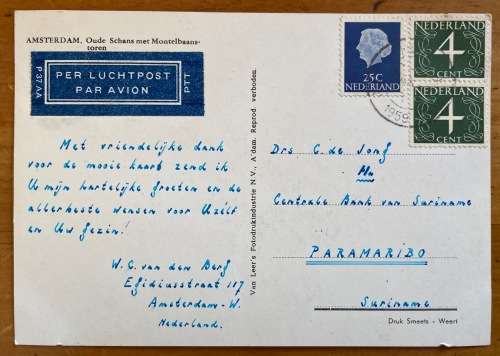 AMSTERDAM, Oude Schans met Montelbaans-
toren
P 37 AA
PER LUCHTPOST
PAR AVION
PTT
Met vriendelijke dank
voor de mooie kaart zend ik
U mijn hartelijke groeten en de
allerbeste wensen voor Uzelf
en Uw gezin!
W.C. van den Berg
Egidiusstraat 117
Amsterdam-W.
Nederland.
Van Leer's Fotodrukindustrie N.V., A'dam. Reprod. verboden.
25C
NEDERLAND
NEDERLAND
4
CENT
NEDERLAND
4
CENT
1959
Drs C. de Jong
Centrale Bank van Suriname
PARAMARIBO
Suriname
Druk Smeets - Weert